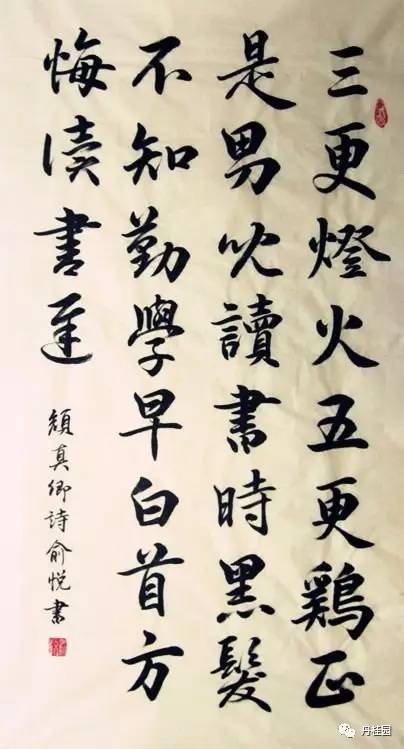 三更燈火五更鷄正
是男兒讀書時黑髮
不知勤學早白首方
悔讀書遲
顏真卿詩俞悅書
丹桂园